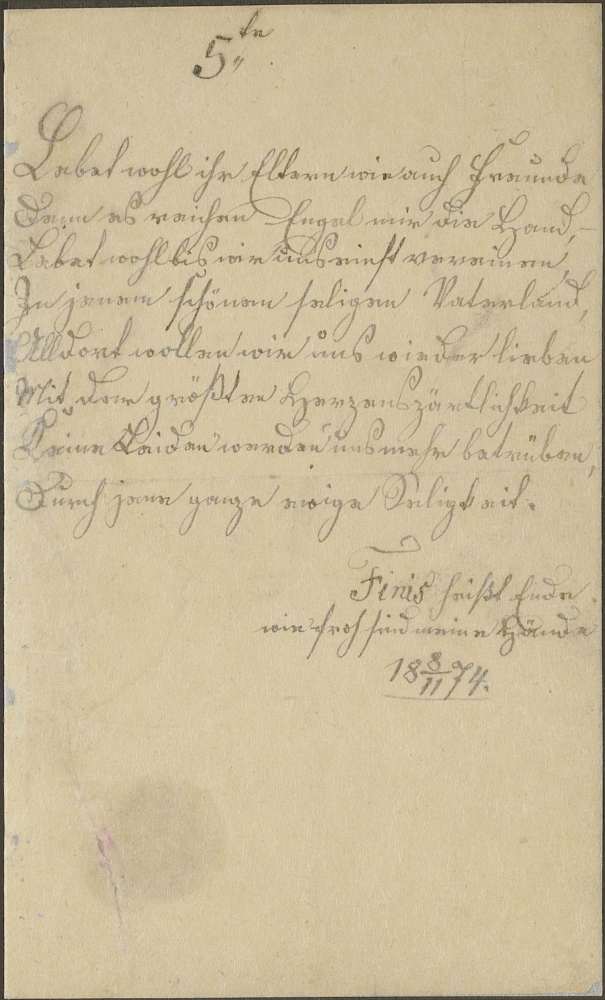 5te
Lebet wohl ihr Eltern wie auch Freunde
Denn es reichen Engel mir die Hand,-
Lebet wohl bis wir uns einst vereinen,
In jenem schönen seligen Vaterland,
Alldort wollen wir uns wieder lieben
Mit der größten Herzenszärtlichkeit
Keine Leiden werden uns mehr betrüben,
Durch jene ganze ewige Seligkeit.
Finis heißt Ende.
wie froh sind meine Hände
18 8/11 74.